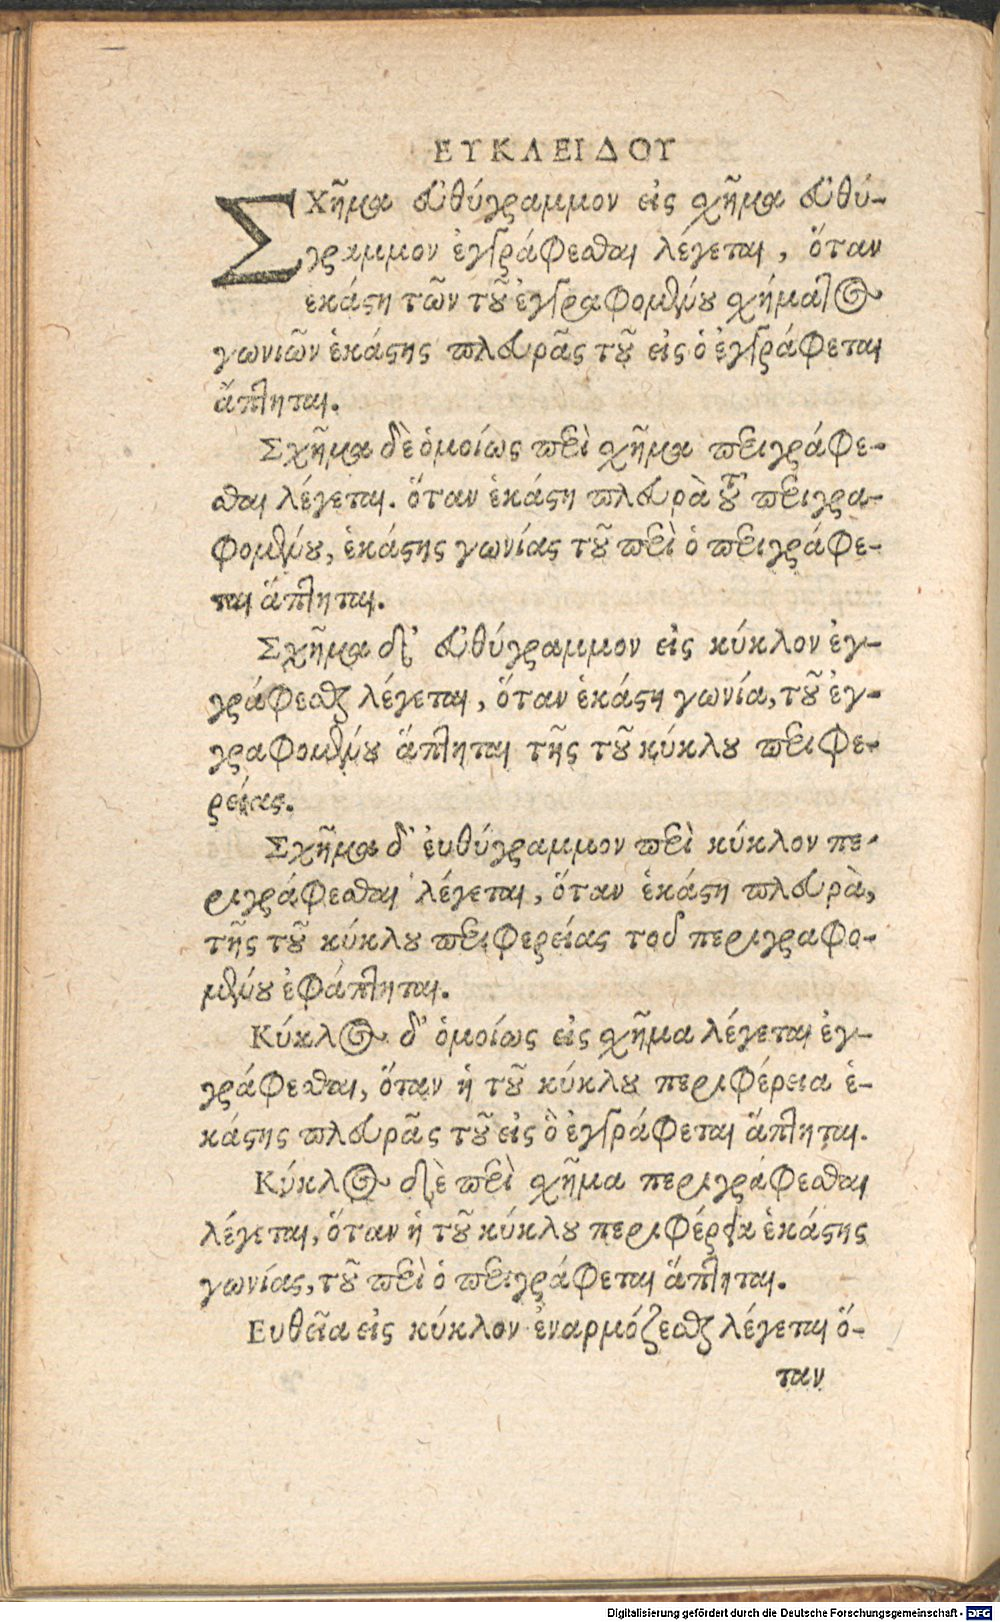 ΕΥΚΛΕΙΔΟΥ
ΣΧῆμα εὐθύγραμμον εἰς σχῆμα εὐθύ-
γραμμον ἐγγράφεσθαι λέγεται, ὅταν
ἑκάστη τῶν τοῦ ἐγγραφομένου σχήματος
γωνιῶν ἑκάστης πλευρᾶς τοῦ εἰς ὁ ἐγγράφεται
ἅπτηται.
Σχῆμα δὲ ὁμοίως περὶ σχῆμα περιγράφε-
σθαι λέγεται. ὅταν ἑκάστη πλευρὰ τοῦ περιγρα-
φομένου, ἑκάστης γωνίας τοῦ περὶ ὁ περιγράφε-
ται ἅπτηται.
Σχῆμα δ' εὐθύγραμμον εἰς κύκλον ἐγ-
γράφεσθαι λέγεται, ὅταν ἑκάστη γωνία, τοῦ ἐγ-
γραφομένου ἅπτηται τῆς τοῦ κύκλου περιφε-
ρείας.
Σχῆμα δ' ἐυθύγραμμον περὶ κύκλον πε-
ριγράφεσθαι λέγεται, ὅταν ἑκάστη πλευρὰ,
τῆς τοῦ κύκλου περιφερείας τοῦ περιγραφο-
μένου ἐφάπτηται.
Κύκλος δ' ὁμοίως εἰς σχῆμα λέγεται ἐγ-
γράφεσθαι, ὅταν ἡ τοῦ κύκλου περιφέρεια ἑ-
κάστης πλευρᾶς τοῦ εἰς ὃ ἐγγράφεται ἅπτηται.
Κύκλος δὲ περὶ σχῆμα περιγράφεσθαι
λέγεται, ὅταν ἡ τοῦ κύκλου περιφέρεια ἑκάστης
γωνίας, τοῦ περὶ ὁ περιγράφεται ἅπτηται.
Ευθεῖα εἰς κύκλον ἐναρμόζεσθαι λέγεται ὅ-
ταν
Digitalisierung gefördert durch die Deutsche Forschungsgemeinschaft - DFG